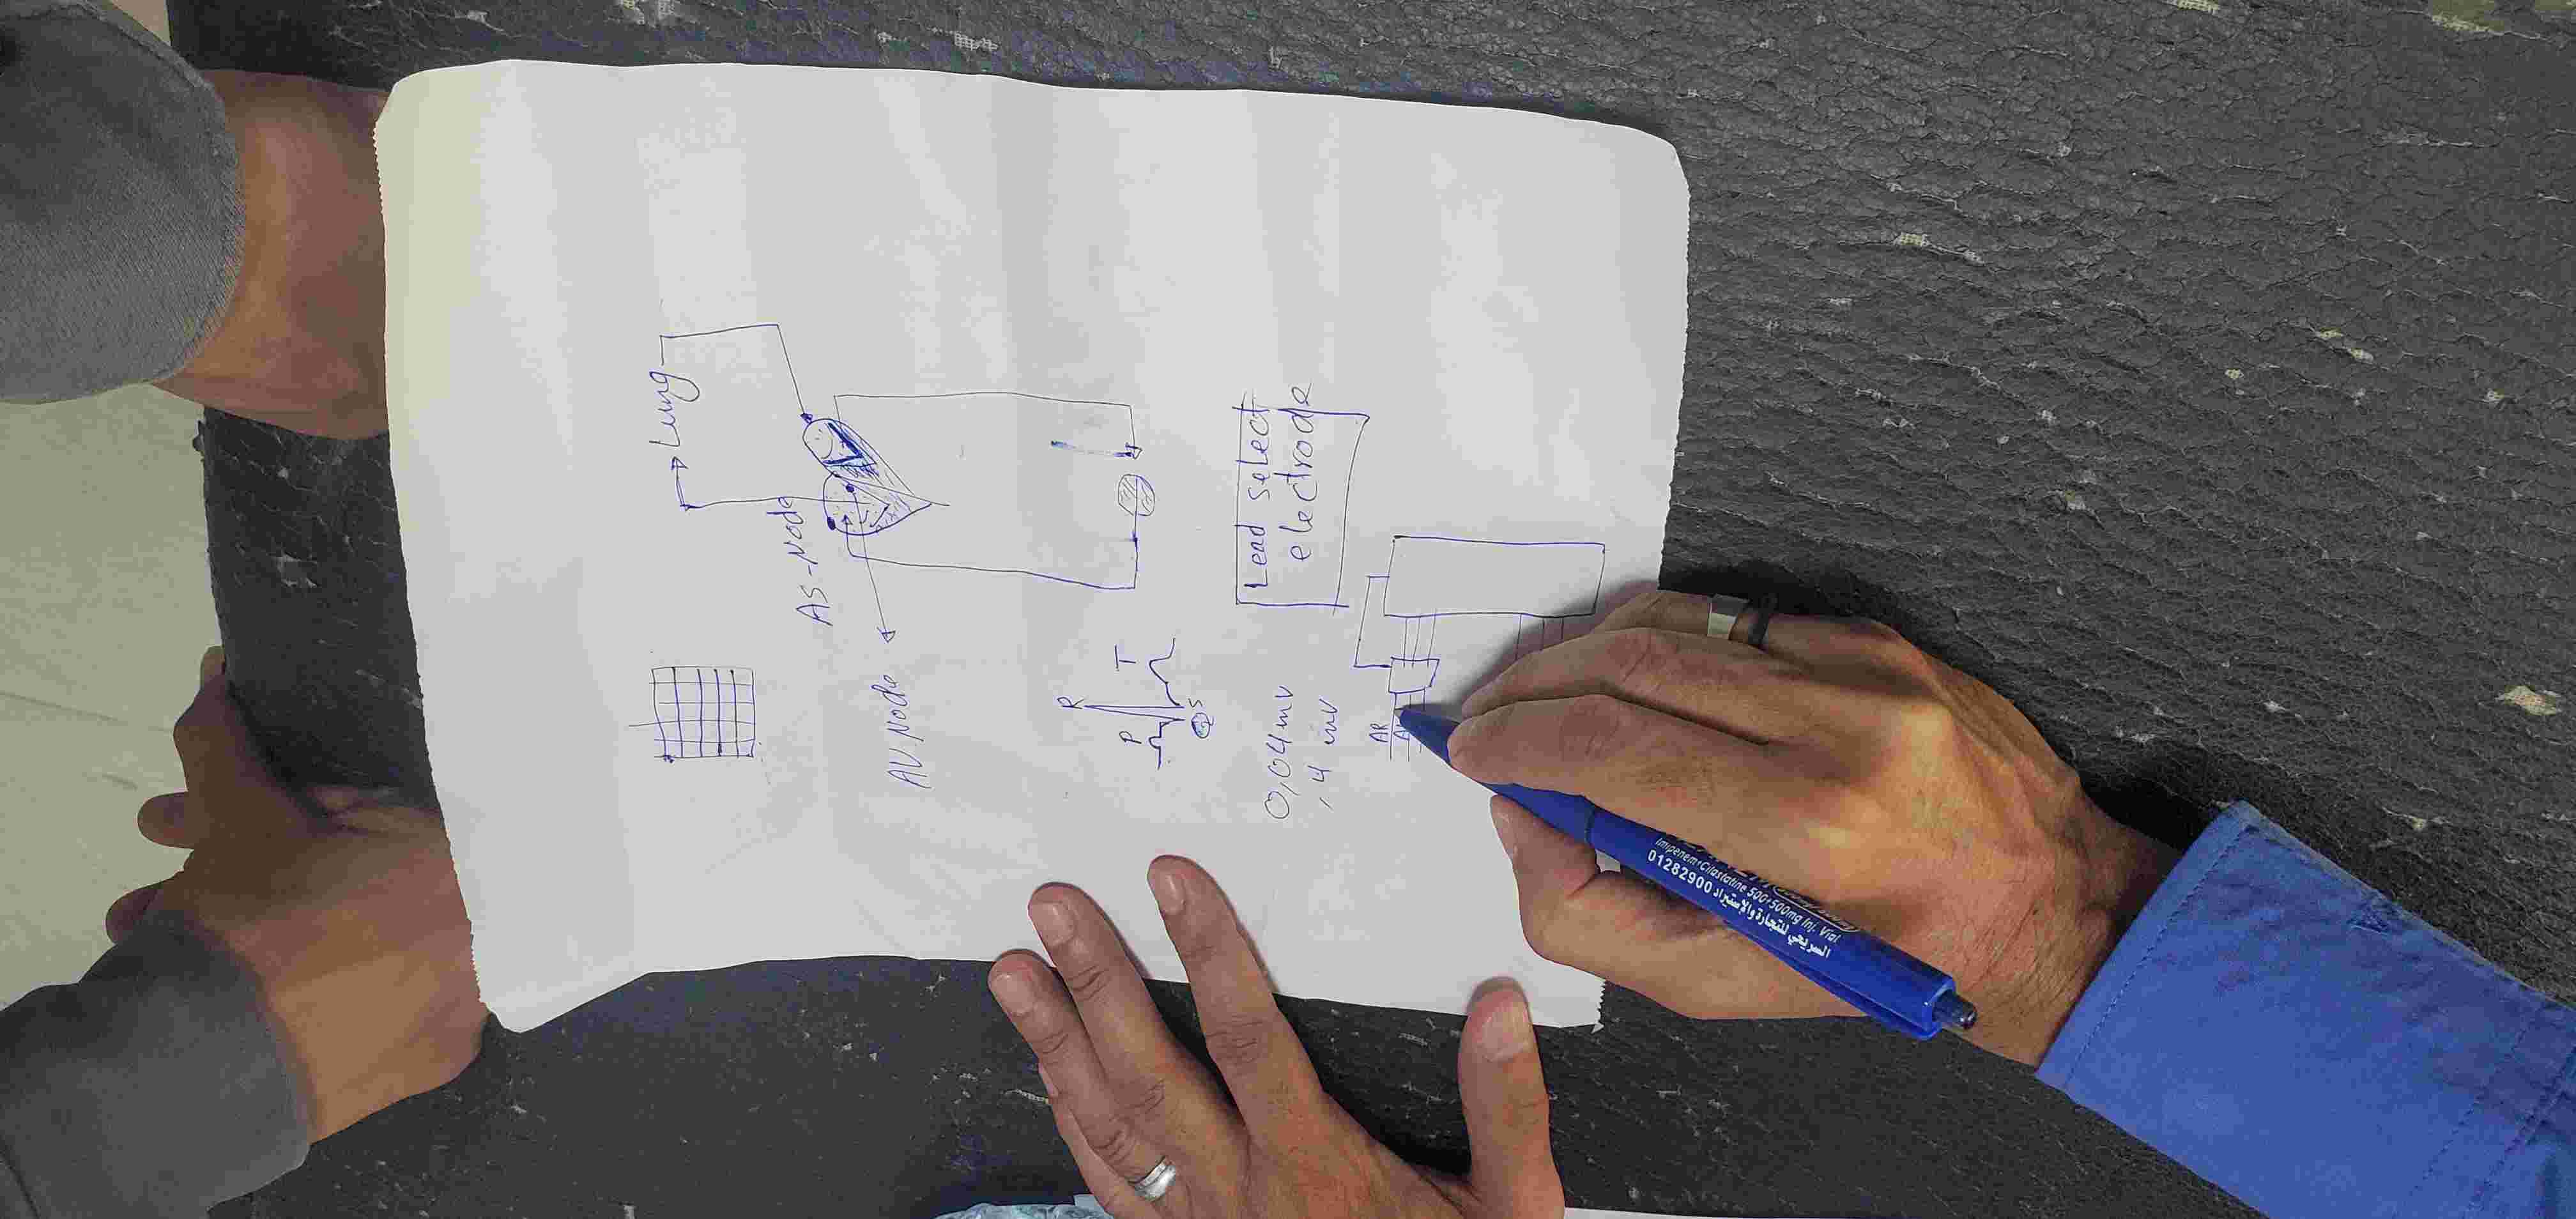 Lung
AS-Node
AV Node
P
R
T
S
Lead select
electrode
0,04mv
,4 mv
AR
A
Imipenem+Cilastatine 500+500mg Inj. Vial
السريحي للتجارة والإستيراد 01282900